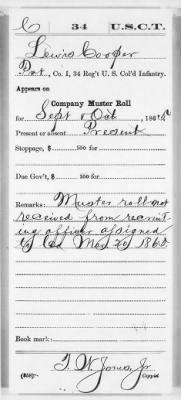 C 34 U.S.C.T.
Lewis Cooper
Pvt., Co. I, 34 Reg't U. S. Col'd Infantry.
Appears on
Company Muster Roll
for Sept & Oct, 1864
Present or absent Present
Stoppage, $ 100 for
Due Gov't, $ 100 for
Remarks: Muster roll not
received from recruit-
ing officer assigned
to Co. May 20 186
Book mark:
T W Jones, Jr
(858) Copyist